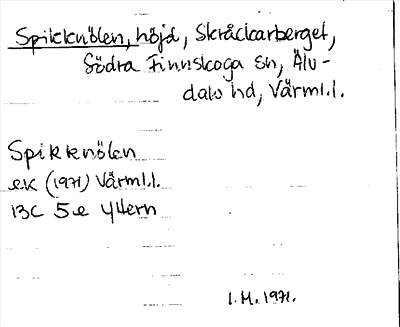 Spikknölen, höjd, Skråckarberget,
Södra Finnskoga sn, Älv-
dals hd, Värml.l.
Spikknölen
ek (1971) Värml.l.
13C 5e Yttern
I.M. 1971.